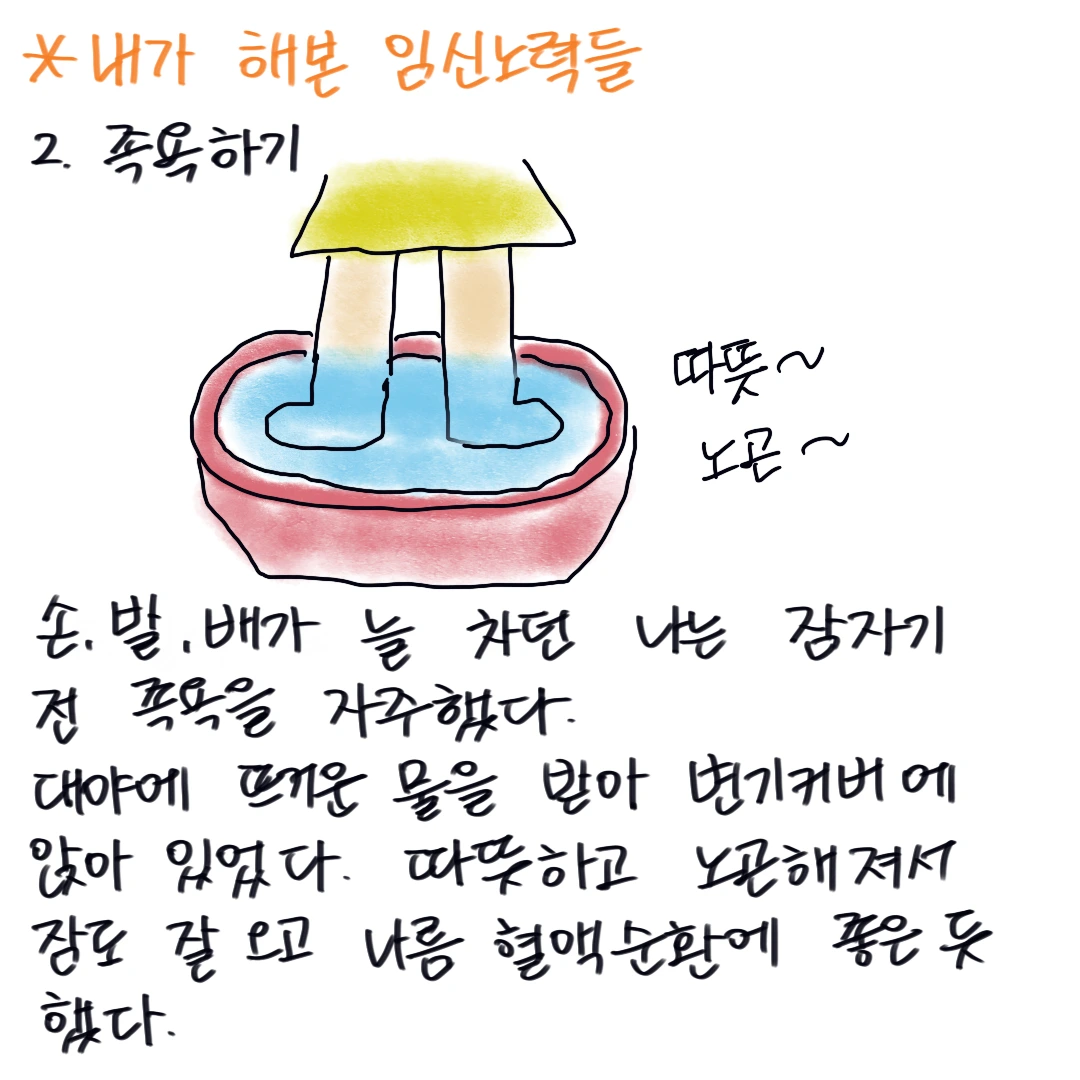 *내가 해본 임신노력들
2. 족욕하기
따뜻~
노곤~
손, 발, 배가 늘 차던 나는 잠자기
전 족욕을 자주했다.
대야에 뜨거운 물을 받아 변기커버에
앉아 있었다. 따뜻하고 노곤해져서
잠도 잘 오고 나름 혈액순환에 좋은 듯
했다.